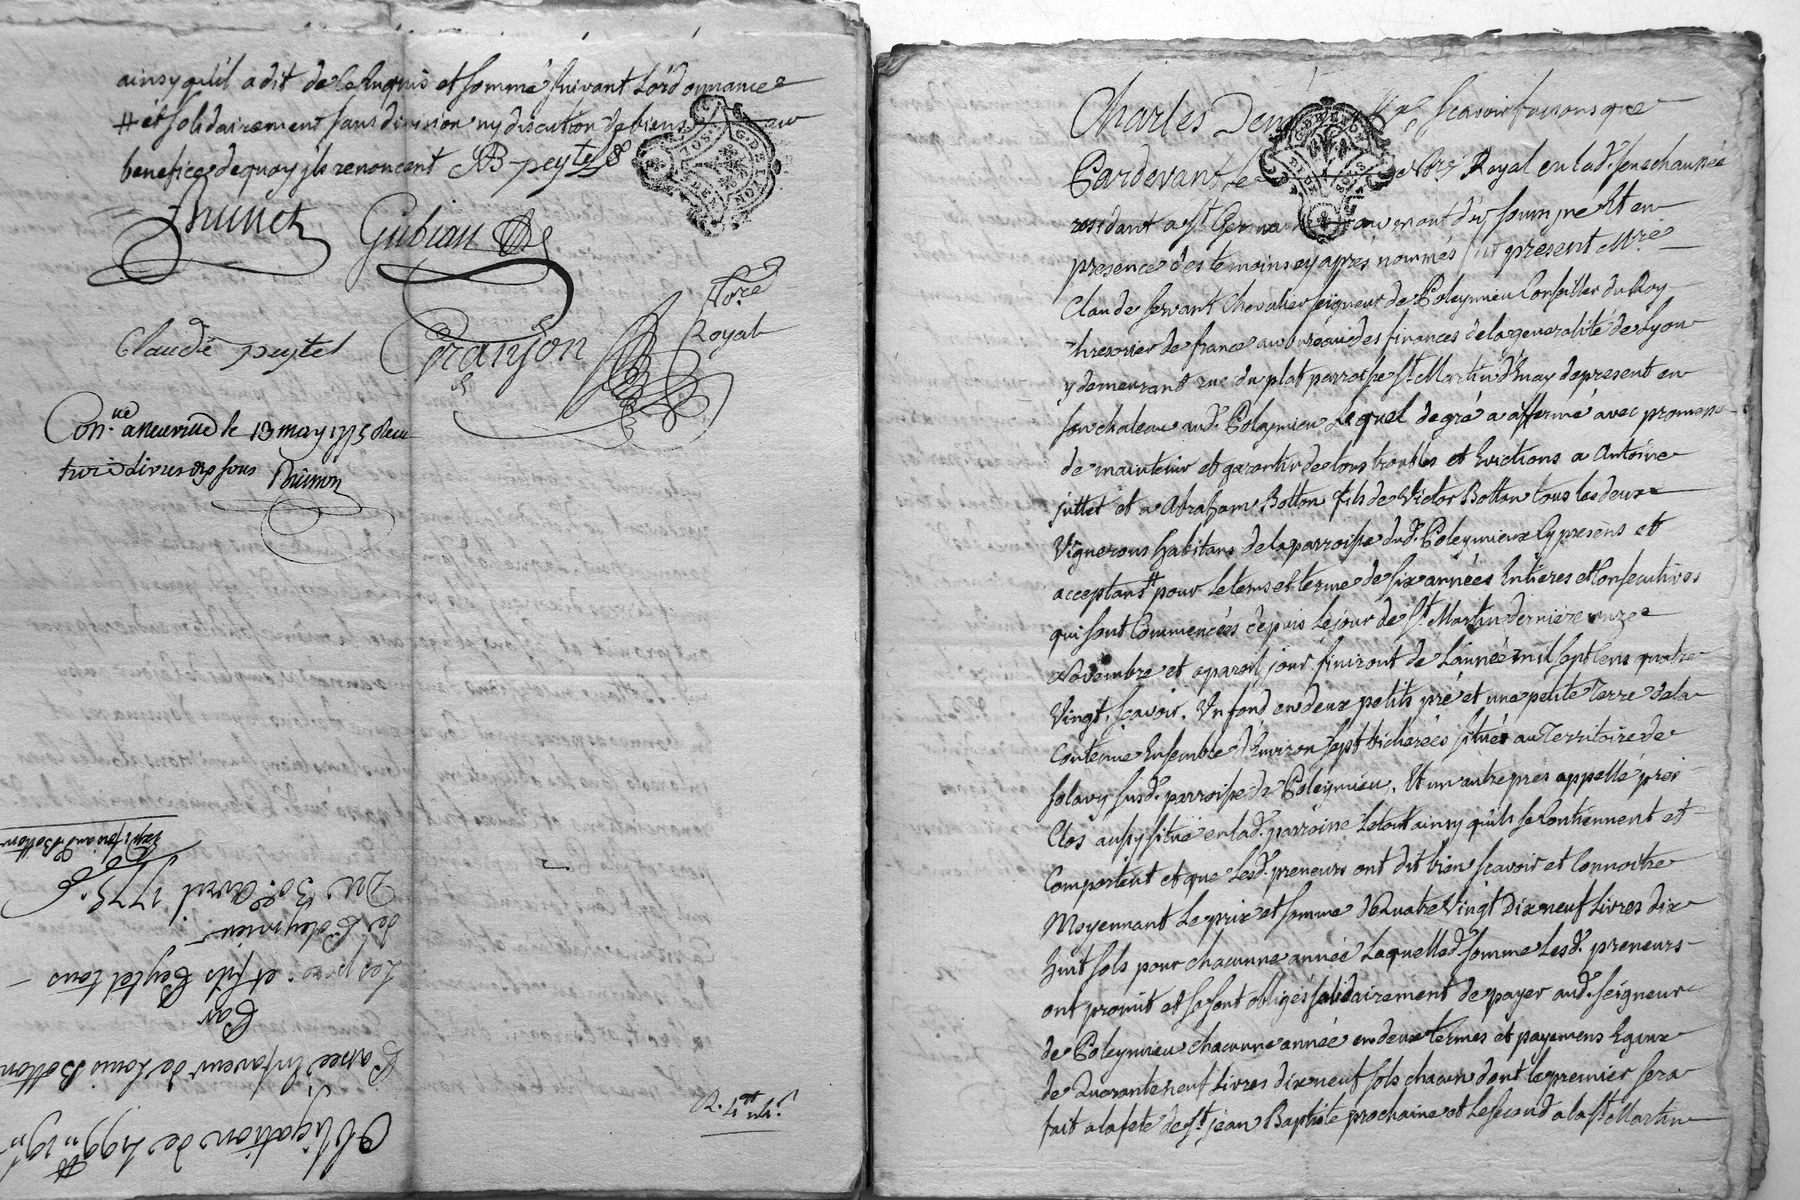 ainsy qu'il a dit de ce Requis et sommé suivant Lordonnance
# et solidairement sans division ny discution de biens au
benefice de quoy ils renoncent B peytel
G. DE LYON
Brunet Gubian
Claude peytel Granjon No.re Royal
Con.lle a neuville le 13 may 1775 Recu
trois Livres dix sous
Obligation de 499 ₶ 19 s
Passée En faveur de Louis Botton
Par
Les pere et fils Peytel tous
de Poleymieu
Du 30.e avril 1775.
Exp.
R. 4 ₶
Charles Dem scavoir faisons que
Pardevant Le No.re Royal en lad. senechaussée
residant a S.t Germain au mont d'or soussigné Et en
presence des temoins cy apres nommés fut present M.re
Claude servant Chevalier seigneur de Poleymieu Conseiller du Roy
thresorier de france au bureau des finances de la generalité de Lyon
y demeurant rue du plat parroisse S.t Martin d'Enay de present en
son chateau aud. Poleymieu Lequel de gré a affermé avec promesse
de maintenir et garantir de tous troubles et Evictions a Antoine
juttet et a Abraham Botton fils de Victor Botton tous les deux
Vignerons habitans de la parroisse dud. Poleymieux Cy presens et
acceptant pour Le tems et terme de six années Entieres et Consecutives
qui sont Commencées depuis Le jour de S.t Martin dernier onze
Novembre et a pareil jour finiront de L'année mil sept Cens quatre
Vingt, sçavoir. Un fond en deux petits pré et une petite Terre de la
Contenue Ensemble d'Environ sept bicherées situés au Territoire de
solavy susd. parroisse de Poleymieu, Et un autre prés appellé prés
Clos aussy situé en lad. parroisse Le tout ainsy qu'ils se Contiennent et
Comportent et que Lesd. preneurs ont dit bien scavoir et Connoitre
Moyennant Le prix et somme de Quatre Vingt Dix neuf Livres dix
huit sols pour chacunne année Laquelle d. somme Lesd. preneurs
ont promit et se sont obligés solidairement de payer aud. seigneur
de Poleymieu chacunne année en deux termes et payemens Egaux
de Quarante neuf Livres dix neuf sols chacun dont le premier sera
fait a la fete de S.t jean Baptiste prochaine et Le second a la S.t Martin